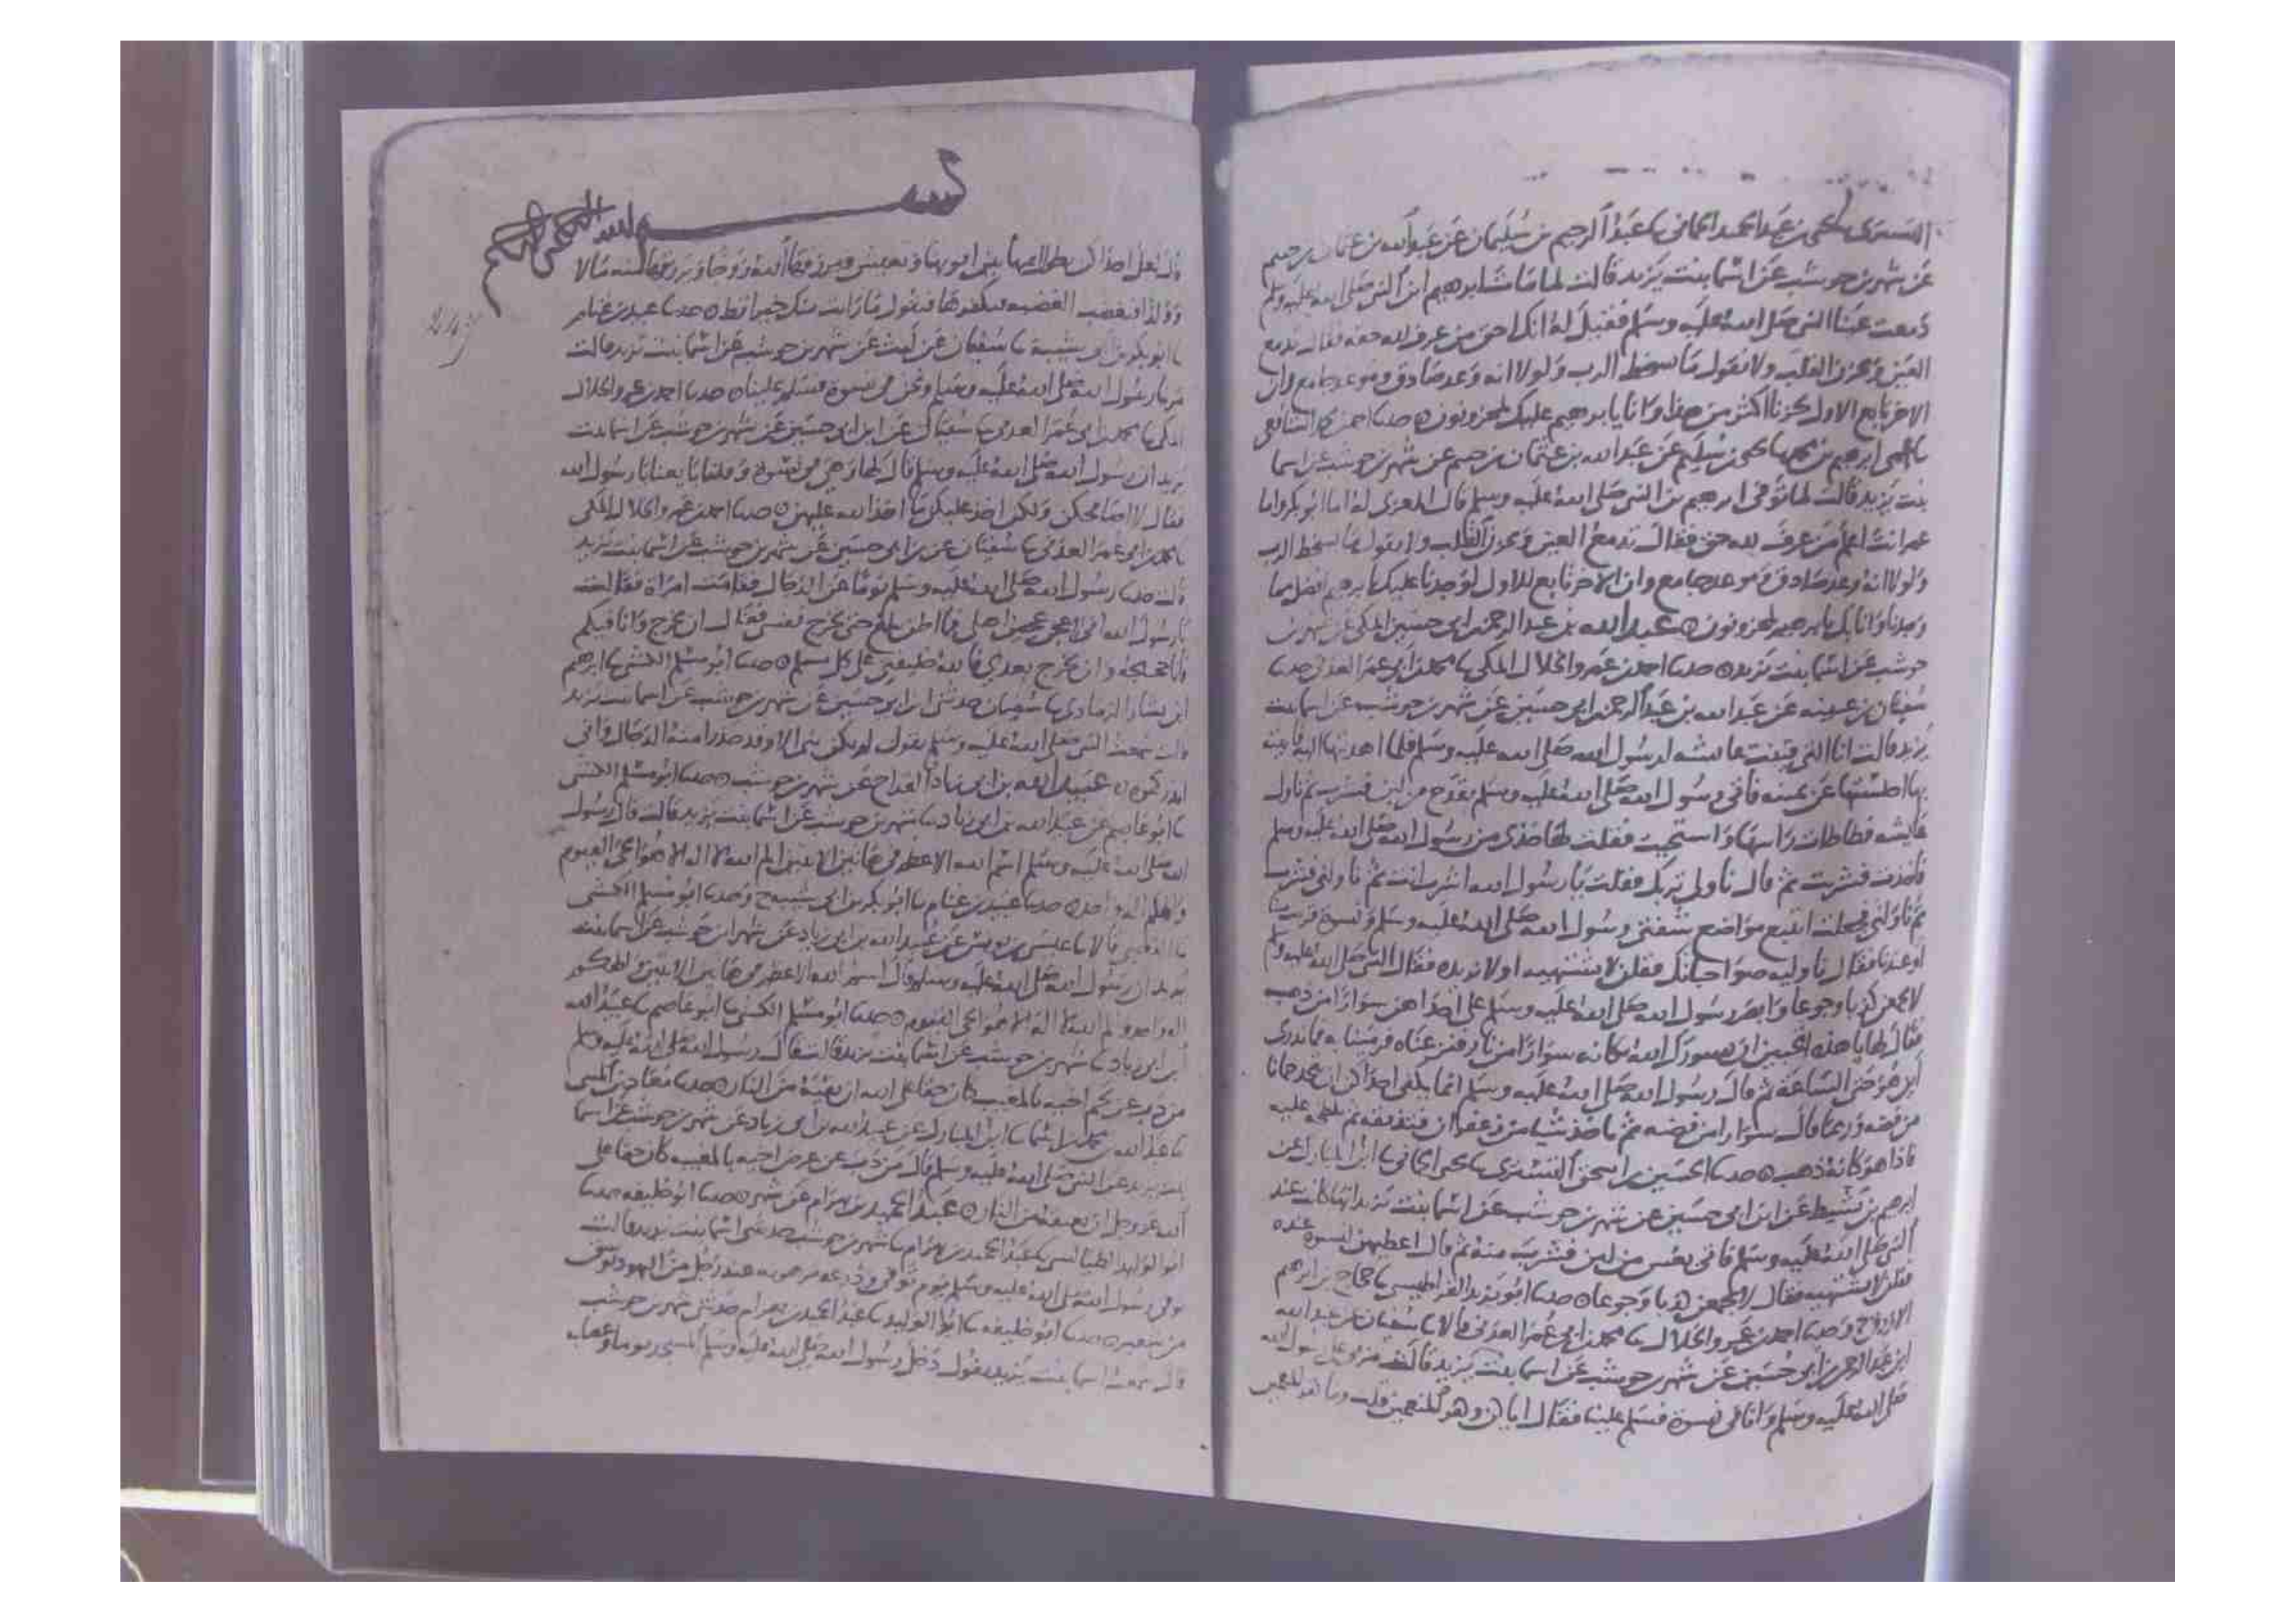 التستري يحيى بن عبد الحميد الحماني نا عبد الرحيم بن سليمان عن عبد الله بن عثمان بن خثيم
عن شهر بن حوشب عن اسما بنت يزيد قالت لما مات ابرهيم ابن النبي صلى الله عليه وسلم
دمعت عينا النبي صلى الله عليه وسلم فقيل له انك احق من عرف لله حقه فقال تدمع
العين ويحزن القلب ولا نقول ما يسخط الرب ولولا انه وعد صادق وموعد جامع وان
الاخر تابع الاول لحزنا اكثر من هذا وانا يا ابرهيم عليك لمحزونون حدثنا احمد الشافعي
نا عمي ابرهيم بن محمد نا يحيى بن سليم عن عبد الله بن عثمان بن خثيم عن شهر بن حوشب عن اسما
بنت يزيد قالت لما توفي ابرهيم بن النبي صلى الله عليه وسلم قال المعزي له اما ابو بكر واما
عمر انت اعلم من عرف لله حق فقال تدمع العين ويحزن القلب ولا نقول ما يسخط الرب
ولولا انه وعد صادق وموعد جامع وان الاخر تابع للاول لوجدنا عليك يا ابرهيم افضل مما
وجدنا وانا بك يا ابرهيم لمحزونون عبد الله بن عبد الرحمن ابي حسين المكي عن شهر بن
حوشب عن اسما بنت يزيد حدثنا احمد بن عمرو الخلال المكي نا محمد بن ابي عمر العدني حدثنا
سفيان بن عيينه عن عبد الله بن عبد الرحمن ابي حسين عن شهر بن حوشب عن اسما بنت
يزيد قالت انا التي قينت عايشه لرسول الله صلى الله عليه وسلم فلما اهديتها اليه
بها اجلستها عن يمينه فاتي رسول الله صلى الله عليه وسلم بقدح من لبن فشرب ثم ناول
عايشه فطاطات راسها واستحيت فقلت لها خذي من رسول الله صلى الله عليه وسلم
فاخذت فشربت ثم قال ناولي تربك فقلت يا رسول الله اشرب انت ثم ناولني فشرب
ثم ناولني فجعلت اتتبع مواضع شفتي رسول الله صلى الله عليه وسلم ونسوة
او عندنا فقال ناوليه صواحباتك فقلن لا نشتهيه او لا نريده فقال النبي صلى الله عليه وسلم
لا تجمعن كذبا وجوعا وابصر رسول الله صلى الله عليه وسلم على احداهن سوارا من ذهب
فقال لها يا هذه اتحبين ان يسورك الله مكانه سوارا من نار فنزعناه فرمينا به فما ندري
اين هو حتى الساعة ثم قال رسول الله صلى الله عليه وسلم انما يكفي احداكن ان تتخذ جمانا
من فضه وربما قال سوارا من فضه ثم تاخذ شيا من زعفران فتديفه ثم تلطخ عليه
فاذا هو كانه ذهب حدثنا الحسين بن اسحق التستري نا يحيى الحماني نا ابن المبارك عن
ابرهيم بن نشيط عن ابن ابي حسين عن شهر بن حوشب عن اسما بنت يزيد انها كانت عند
النبي صلى الله عليه وسلم فاتي بعس من لبن فشرب منه ثم قال اعطيهن لنسوة عنده
فقلن لا نشتهيه فقال لا تجمعن كذبا وجوعا حدثنا ابو يزيد القراطيسي نا حجاج بن ابرهيم
الازرق وحدثنا احمد بن عمرو الخلال نا محمد بن ابي عمر العدني قالا نا سفيان عن عبد الله
ابن عبد الرحمن ابي حسين عن شهر بن حوشب عن اسما بنت يزيد قالت مر بي رسول الله
صلى الله عليه وسلم وانا في نسوة فسلم علينا فقال اياكن وكفر المنعمين قلت وما كفر المنعمين
بسم الله الرحمن الرحيم
قال لعل احداكن تطول ايمتها بين ابويها وتعنس ويرزقها الله زوجا ويرزقها منه مالا
وولدا فتغضب الغضبه فتكفرها فتقول ما رايت منك خيرا قط حدثنا عبيد بن غنام
نا ابو بكر بن ابي شيبة نا سفيان عن ليث عن شهر بن حوشب عن اسما بنت يزيد قالت
مر بنا رسول الله صلى الله عليه وسلم ونحن في نسوة فسلم علينا حدثنا احمد بن عمرو الخلال
المكي نا محمد بن ابي عمر العدني نا سفيان عن ابن ابي حسين عن شهر بن حوشب عن اسما بنت
يزيد ان رسول الله صلى الله عليه وسلم قال لها وهي في نسوة وقلنا بايعنا يا رسول الله
فقال لا اصافحكن ولكن اخذ عليكن ما اخذ الله عليهن حدثنا احمد بن عمرو الخلال المكي
نا محمد بن ابي عمر العدني نا سفيان عن بن ابي حسين عن شهر بن حوشب عن اسما بنت يزيد
قالت حدثنا رسول الله صلى الله عليه وسلم يوما عن الدجال فقامت امراة فقالت
يا رسول الله اني اعجن عجين اهلي فما اظن يبلغ حتى يخرج نفس فقال ان يخرج وانا فيكم
فانا حجيجه وان يخرج بعدي فالله خليفتي على كل مسلم حدثنا ابو مسلم الكشي نا ابرهيم
ابن بشار الرمادي نا سفيان حدثني ابن ابي حسين عن شهر بن حوشب عن اسما بنت يزيد
قالت سمعت النبي صلى الله عليه وسلم يقول لم يكن نبي الا وقد حذر امته الدجال واني
انذركموه عبيد الله بن ابي زياد القداح عن شهر بن حوشب حدثنا ابو مسلم الكشي
نا ابو عاصم عن عبيد الله بن ابي زياد نا شهر بن حوشب عن اسما بنت يزيد قالت قال رسول
الله صلى الله عليه وسلم اسم الله الاعظم في هاتين الايتين الم الله لا اله الا هو الحي القيوم
والهكم اله واحد حدثنا عبيد بن غنام نا ابو بكر بن ابي شيبة ح وحدثنا ابو مسلم الكشي
نا القعنبي قالا نا عيسى بن يونس عن عبيد الله بن ابي زياد عن شهر بن حوشب عن اسما بنت
يزيد ان رسول الله صلى الله عليه وسلم قال اسم الله الاعظم في هاتين الايتين والهكم
اله واحد والم الله لا اله الا هو الحي القيوم حدثنا ابو مسلم الكشي نا ابو عاصم نا عبيد الله
ابن ابي زياد نا شهر بن حوشب عن اسما بنت يزيد قالت قال رسول الله صلى الله عليه وسلم
من ذب عن لحم اخيه بالمغيب كان حقا على الله ان يعتقه من النار حدثنا معاذ بن المثنى
نا عبد الله بن محمد بن اسما نا ابن المبارك عن عبيد الله بن ابي زياد عن شهر بن حوشب عن اسما
بنت يزيد عن النبي صلى الله عليه وسلم قال من ذب عن عرض اخيه بالمغيب كان حقا على
الله عز وجل ان يعتقه من النار عبد الحميد بن بهرام عن شهر حدثنا ابو خليفه حدثنا
ابو الوليد الطيالسي نا عبد الحميد بن بهرام نا شهر بن حوشب حدثتني اسما بنت يزيد قالت
توفي رسول الله صلى الله عليه وسلم يوم توفي ودرعه مرهونه عند رجل من اليهود بوسق
من شعير حدثنا ابو خليفه نا ابو الوليد نا عبد الحميد بن بهرام حدثني شهر بن حوشب
قال سمعت اسما بنت يزيد تقول دخل رسول الله صلى الله عليه وسلم المسجد يوما وعصابه